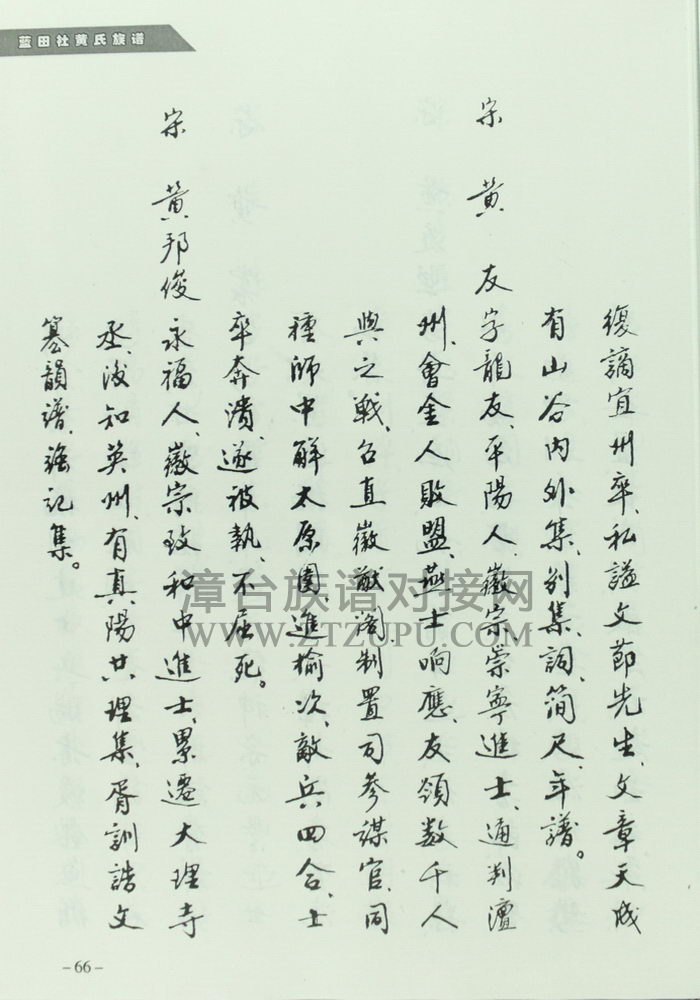 蓝田社黄氏族谱
復謫宜州卒、私謚文節先生、文章天成
有山谷内外集、别集、詞、簡尺、年譜。
宋 黄 友 字龍友、平陽人、徽宗崇寧進士、通判澶
州、會金人敗盟、燕士响應、友領数千人
與之戦、召直徽猷阁制置司参謀官、同
種師中解太原圍、進榆次、敵兵四合、士
卒奔潰、遂被執、不屈死。
宋 黄邦俊 永福人、徽宗政和中進士、累遷大理寺
丞、後知英州、有真陽共理集、胥訓誥文
篆韻譜、強記集。
漳台族谱对接网
WWW.ZTZUPU.COM
-66-